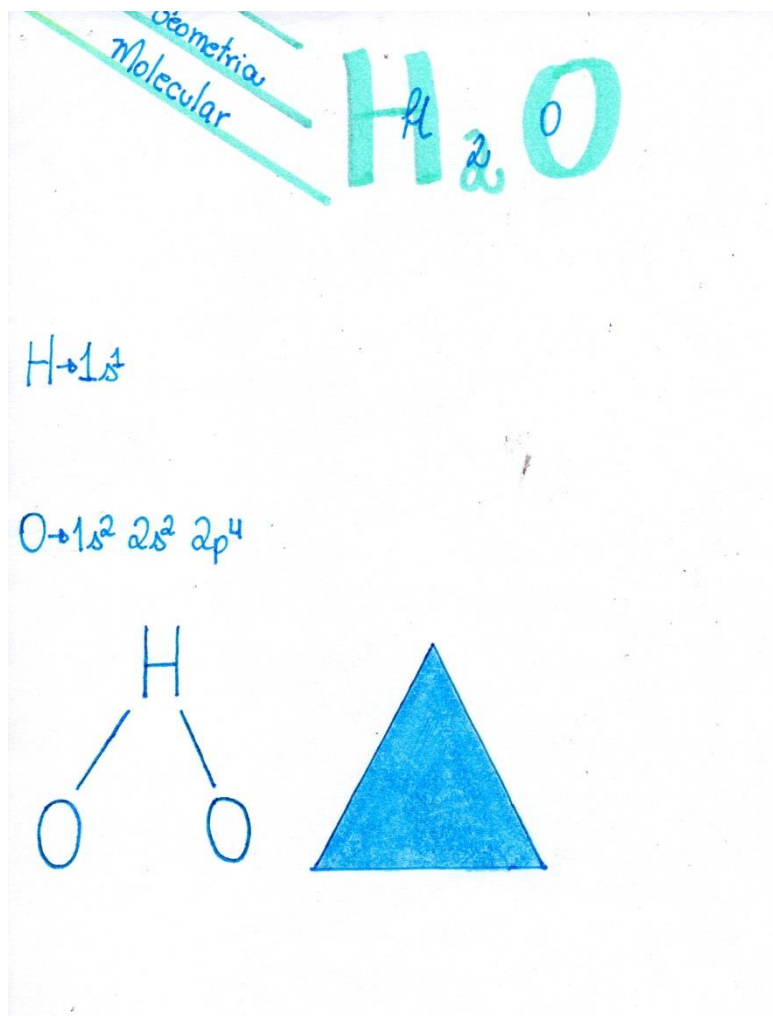 Geometria
Molecular
H2O
H2O
H→1s¹
O→1s² 2s² 2p⁴
H
O O